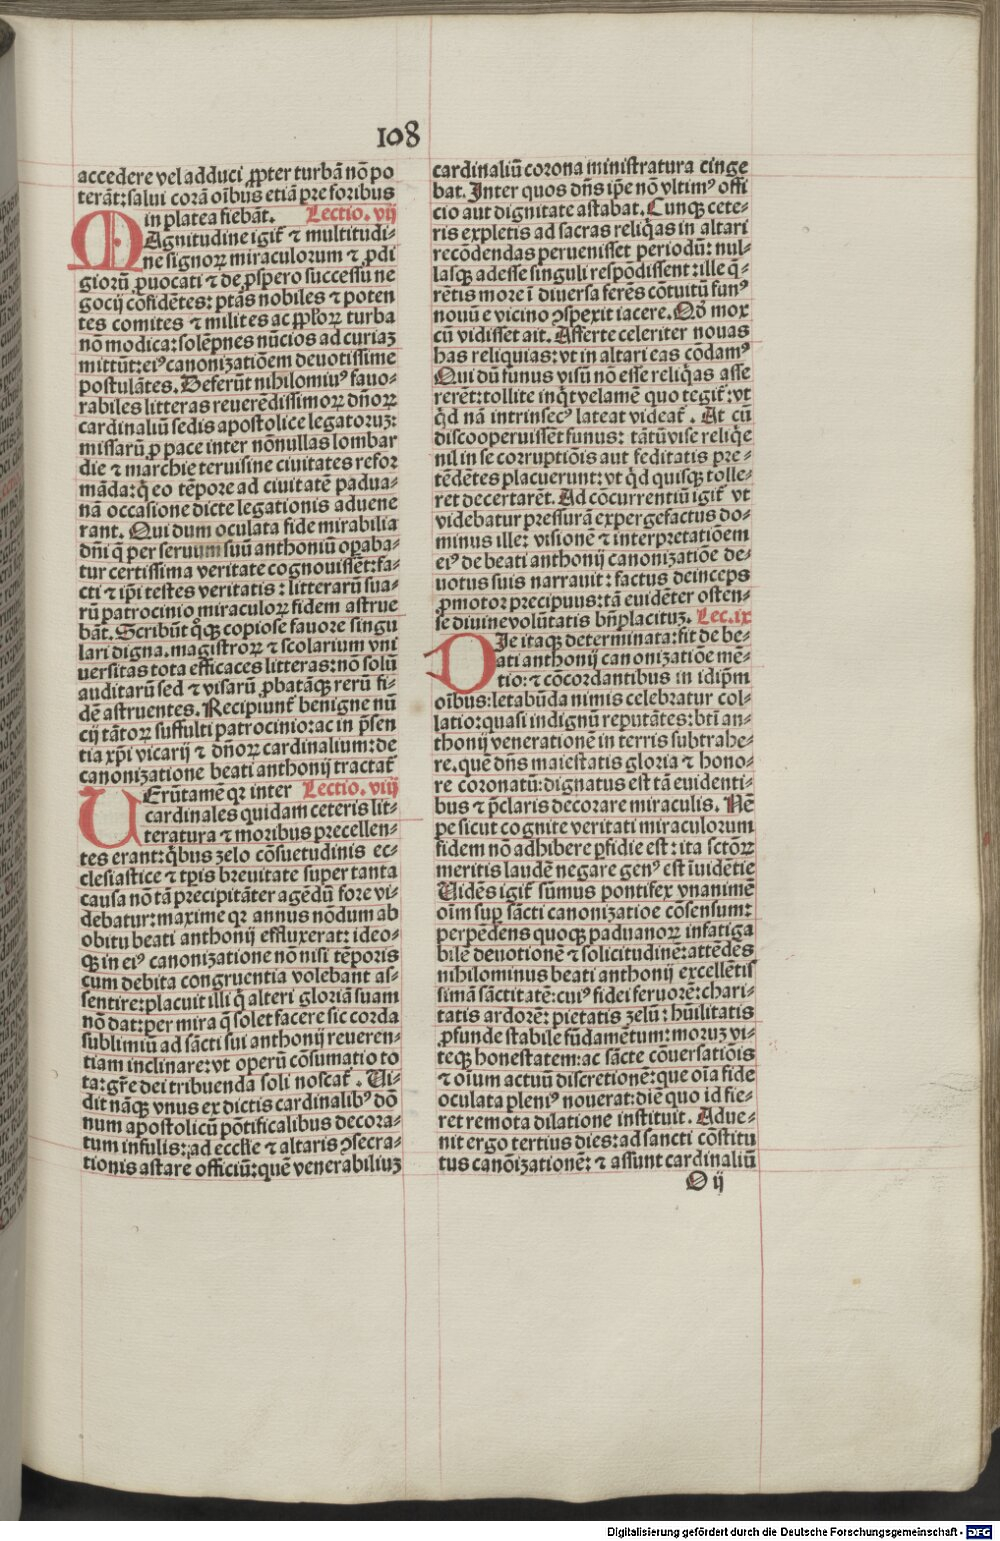 108
accedere vel adduci ꝓpter turbā nō po
terāt: salui corā oībus etiā pre foribus
in platea fiebāt. Lectio. vij
MAgnitudine igit̃ ⁊ multitudi-
ne signoꝝ miraculorum ⁊ ꝓdi
gioꝝū ꝓuocati ⁊ de ꝓspero successu ne
gocij cōfidētes: ptās nobiles ⁊ poten
tes comites ⁊ milites ac pp̄loꝝ turba
nō modica: solēpnes nūcios ad curiaꝫ
mittūt: eiꝰ canonizatiōem deuotissime
postulātes. Deferūt nihilomiꝰ fauo-
rabiles litteras reuerēdissimoꝝ dn̄oꝝ
cardinaliū sedis apostolice legatoruꝫ:
missarū ꝓ pace inter nōnullas lombar
die ⁊ marchie teruisine ciuitates refor
māda: q̇ eo tēpore ad ciuitatē padua-
nā occasione dicte legationis aduene
rant. Qui dum oculata fide mirabilia
dn̄i q̄ per seruum suū anthoniū oꝑaba-
tur certissima veritate cognouissēt: fa-
cti ⁊ ip̄i testes veritatis: litterarū sua-
rū patrocinio miraculoꝝ fidem astrue
bāt. Scribūt q̊qꝫ copiose fauore singu
lari digna. magistroꝝ ⁊ scolarium vni
uersitas tota efficaces litteras: nō solū
auditarū sed ⁊ visarū ꝓbatāqꝫ rerū fi-
dē astruentes. Recipiunt̃ benigne nū
cij tātoꝝ suffulti patrocinio: ac in p̄sen
tia xp̄i vicarij ⁊ dn̄oꝝ cardinalium: de
canonizatione beati anthonij tractat̃
VErūtamē qꝛ inter Lectio. viij
cardinales quidam ceteris lit-
teratura ⁊ moribus precellen-
tes erant: q̇bus zelo cōsuetudinis ec-
clesiastice ⁊ tp̄is breuitate super tanta
causa nō tā precipitāter agēdū fore vi-
debatur: maxime qꝛ annus nōdum ab
obitu beati anthonij effluxerat: ideo-
qꝫ in eiꝰ canonizatione nō nisi tēporis
cum debita congruentia volebant as-
sentire: placuit illi q̇ alteri gloriā suam
nō dat: per mira q̄ solet facere sic corda
sublimiū ad sācti sui anthonij reueren-
tiam inclinare: vt operū cōsumatio to
ta: gr̄e dei tribuenda soli noscat̃. Ui-
dit nāqꝫ vnus ex dictis cardinalibꝰ dō
num apostolicū pōtificalibus decora-
tum infulis: ad eccl̄ie ⁊ altaris ꝯsecra-
tionis astare officiū: quē venerabiliuꝫ
cardinaliū corona ministratura cinge
bat. Inter quos dn̄s ip̄e nō vltimꝰ offi
cio aut dignitate astabat. Cunqꝫ cete-
ris expletis ad sacras reliq̇as in altari
recōdendas peruenisset periodū: nul-
lasqꝫ adesse singuli respōdissent: ille q̄-
rētis more ī diuersa ferēs cōtuitū funꝰ
nouū e vicino ꝯspexit iacere. Qd̓ mox
cū vidisset ait. Afferte celeriter nouas
has reliquias: vt in altari eas cōdamꝰ
Qui dū funus visū nō esse reliq̇as asse
rerēt: tollite inq̇t velamē quo tegit̃: vt
q̇d nā intrinsecꝰ lateat videat̃. At cū
discooperuissēt funus: tātū vise reliq̇e
nil in se corruptiōis aut feditatis pre-
tēdētes placuerunt: vt q̇d quisqꝫ tolle-
ret decertarēt. Ad cōcurrentiū igit̃ vt
videbatur pressurā expergefactus do-
minus ille: visionē ⁊ interpretatiōem
eiꝰ de beati anthonij canonizatiōe de-
uotus suis narrauit: factus deinceps
ꝓmotor precipuus: tā euidēter osten-
se diuine volūtatis bn̄placituꝫ. Lec. ix
DIe itaqꝫ determinata: fit de be-
ati anthonij canonizatiōe mē-
tio: ⁊ cōcordantibus in idip̄m
oībus: letabūda nimis celebratur col-
latio: quasi indignū reputātes: bt̄i an-
thonij venerationē in terris subtrahe-
re. quē dn̄s maiestatis gloria ⁊ hono-
re coronatū: dignatus est tā euidenti-
bus ⁊ p̄claris decorare miraculis. Nē
pe sicut cognite veritati miraculorum
fidem nō adhibere ꝑfidie est: ita sctōꝝ
meritis laudē negare genꝰ est īuidētie
Uidēs igit̃ sūmus pontifex vnanimē
oīm suꝑ sācti canonizatioe cōsensum:
perpēdens quoqꝫ paduanoꝝ infatiga
bilē deuotionē ⁊ solicitudinē: attēdēs
nihilominus beati anthonij excellētis
simā sāctitatē: cuiꝰ fidei feruorē: chari-
tatis ardorē: pietatis zelū: hūilitatis
ꝓfunde stabile fūdamētum: moruꝫ vi-
teqꝫ honestatem: ac sācte cōuersatiōis
⁊ oīum actuū discretionē: que oīa fide
oculata pleniꝰ nouerat: diē quo id fie-
ret remota dilatione instituit. Adue-
nit ergo tertius dies: ad sancti cōstitu
tus canōizationē: ⁊ assunt cardinaliū
O ij
Digitalisierung gefördert durch die Deutsche Forschungsgemeinschaft - DFG